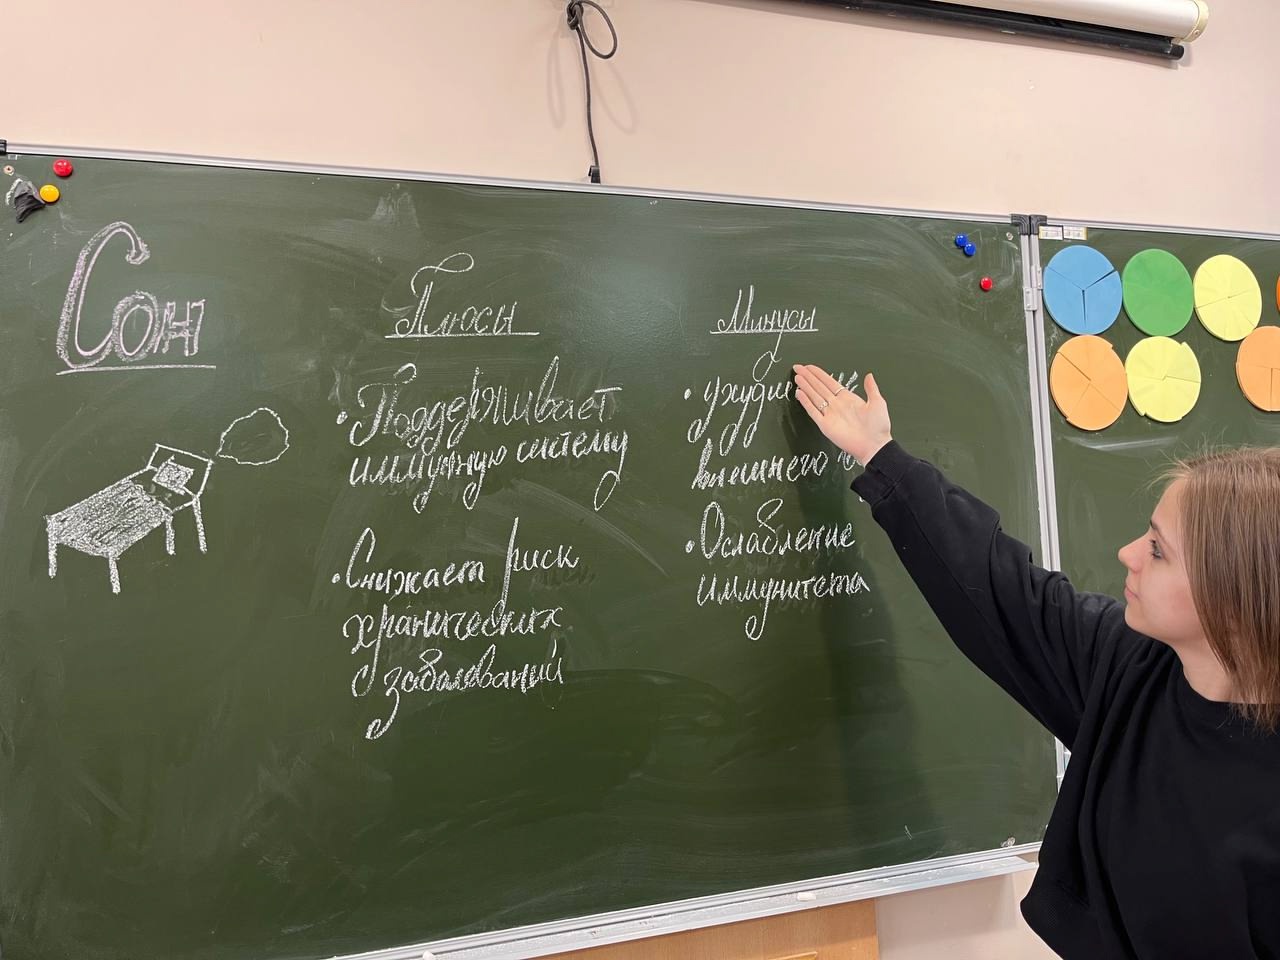 Сон
Плюсы
• Поддерживает
иммунную систему
• Снижает риск
хранических
заболеваний
Минусы
•
внешнего
• Ослабление
иммунитета